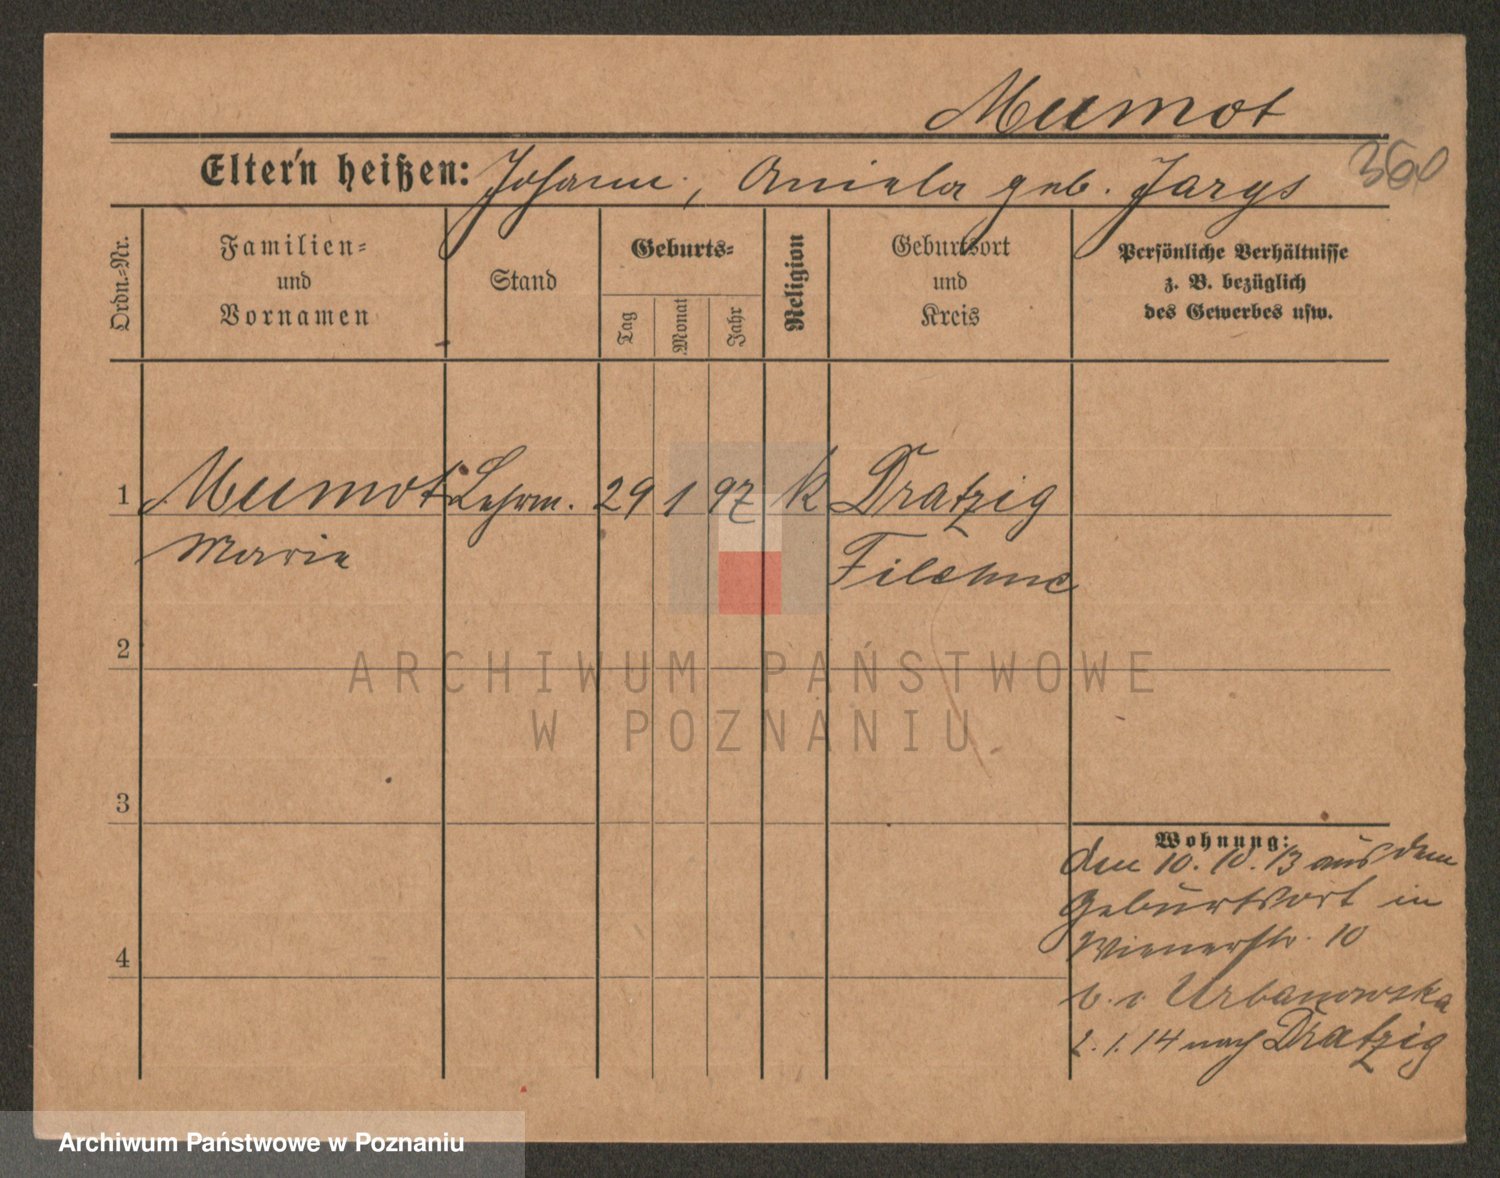 Mumot
360
Eltern heißen: Johann, Aniela geb. Jarys
Ordn.=Nr.
Familien=
und
Vornamen
Stand
Geburts=
Tag
Monat
Jahr
Religion
Geburtsort
und
Kreis
Persönliche Verhältnisse
z. B. bezüglich
des Gewerbes usw.
1 Mumot Lehrm. 29 1 97 K Dratzig
Marie Filehne
2
3
4
Wohnung:
den 10. 10. 13 aus dem
Geburtsort in
Wienerstr. 10
b. Urbanowska
2. 1. 14 nach Dratzig
ARCHIWUM PAŃSTWOWE
W POZNANIU
Archiwum Państwowe w Poznaniu